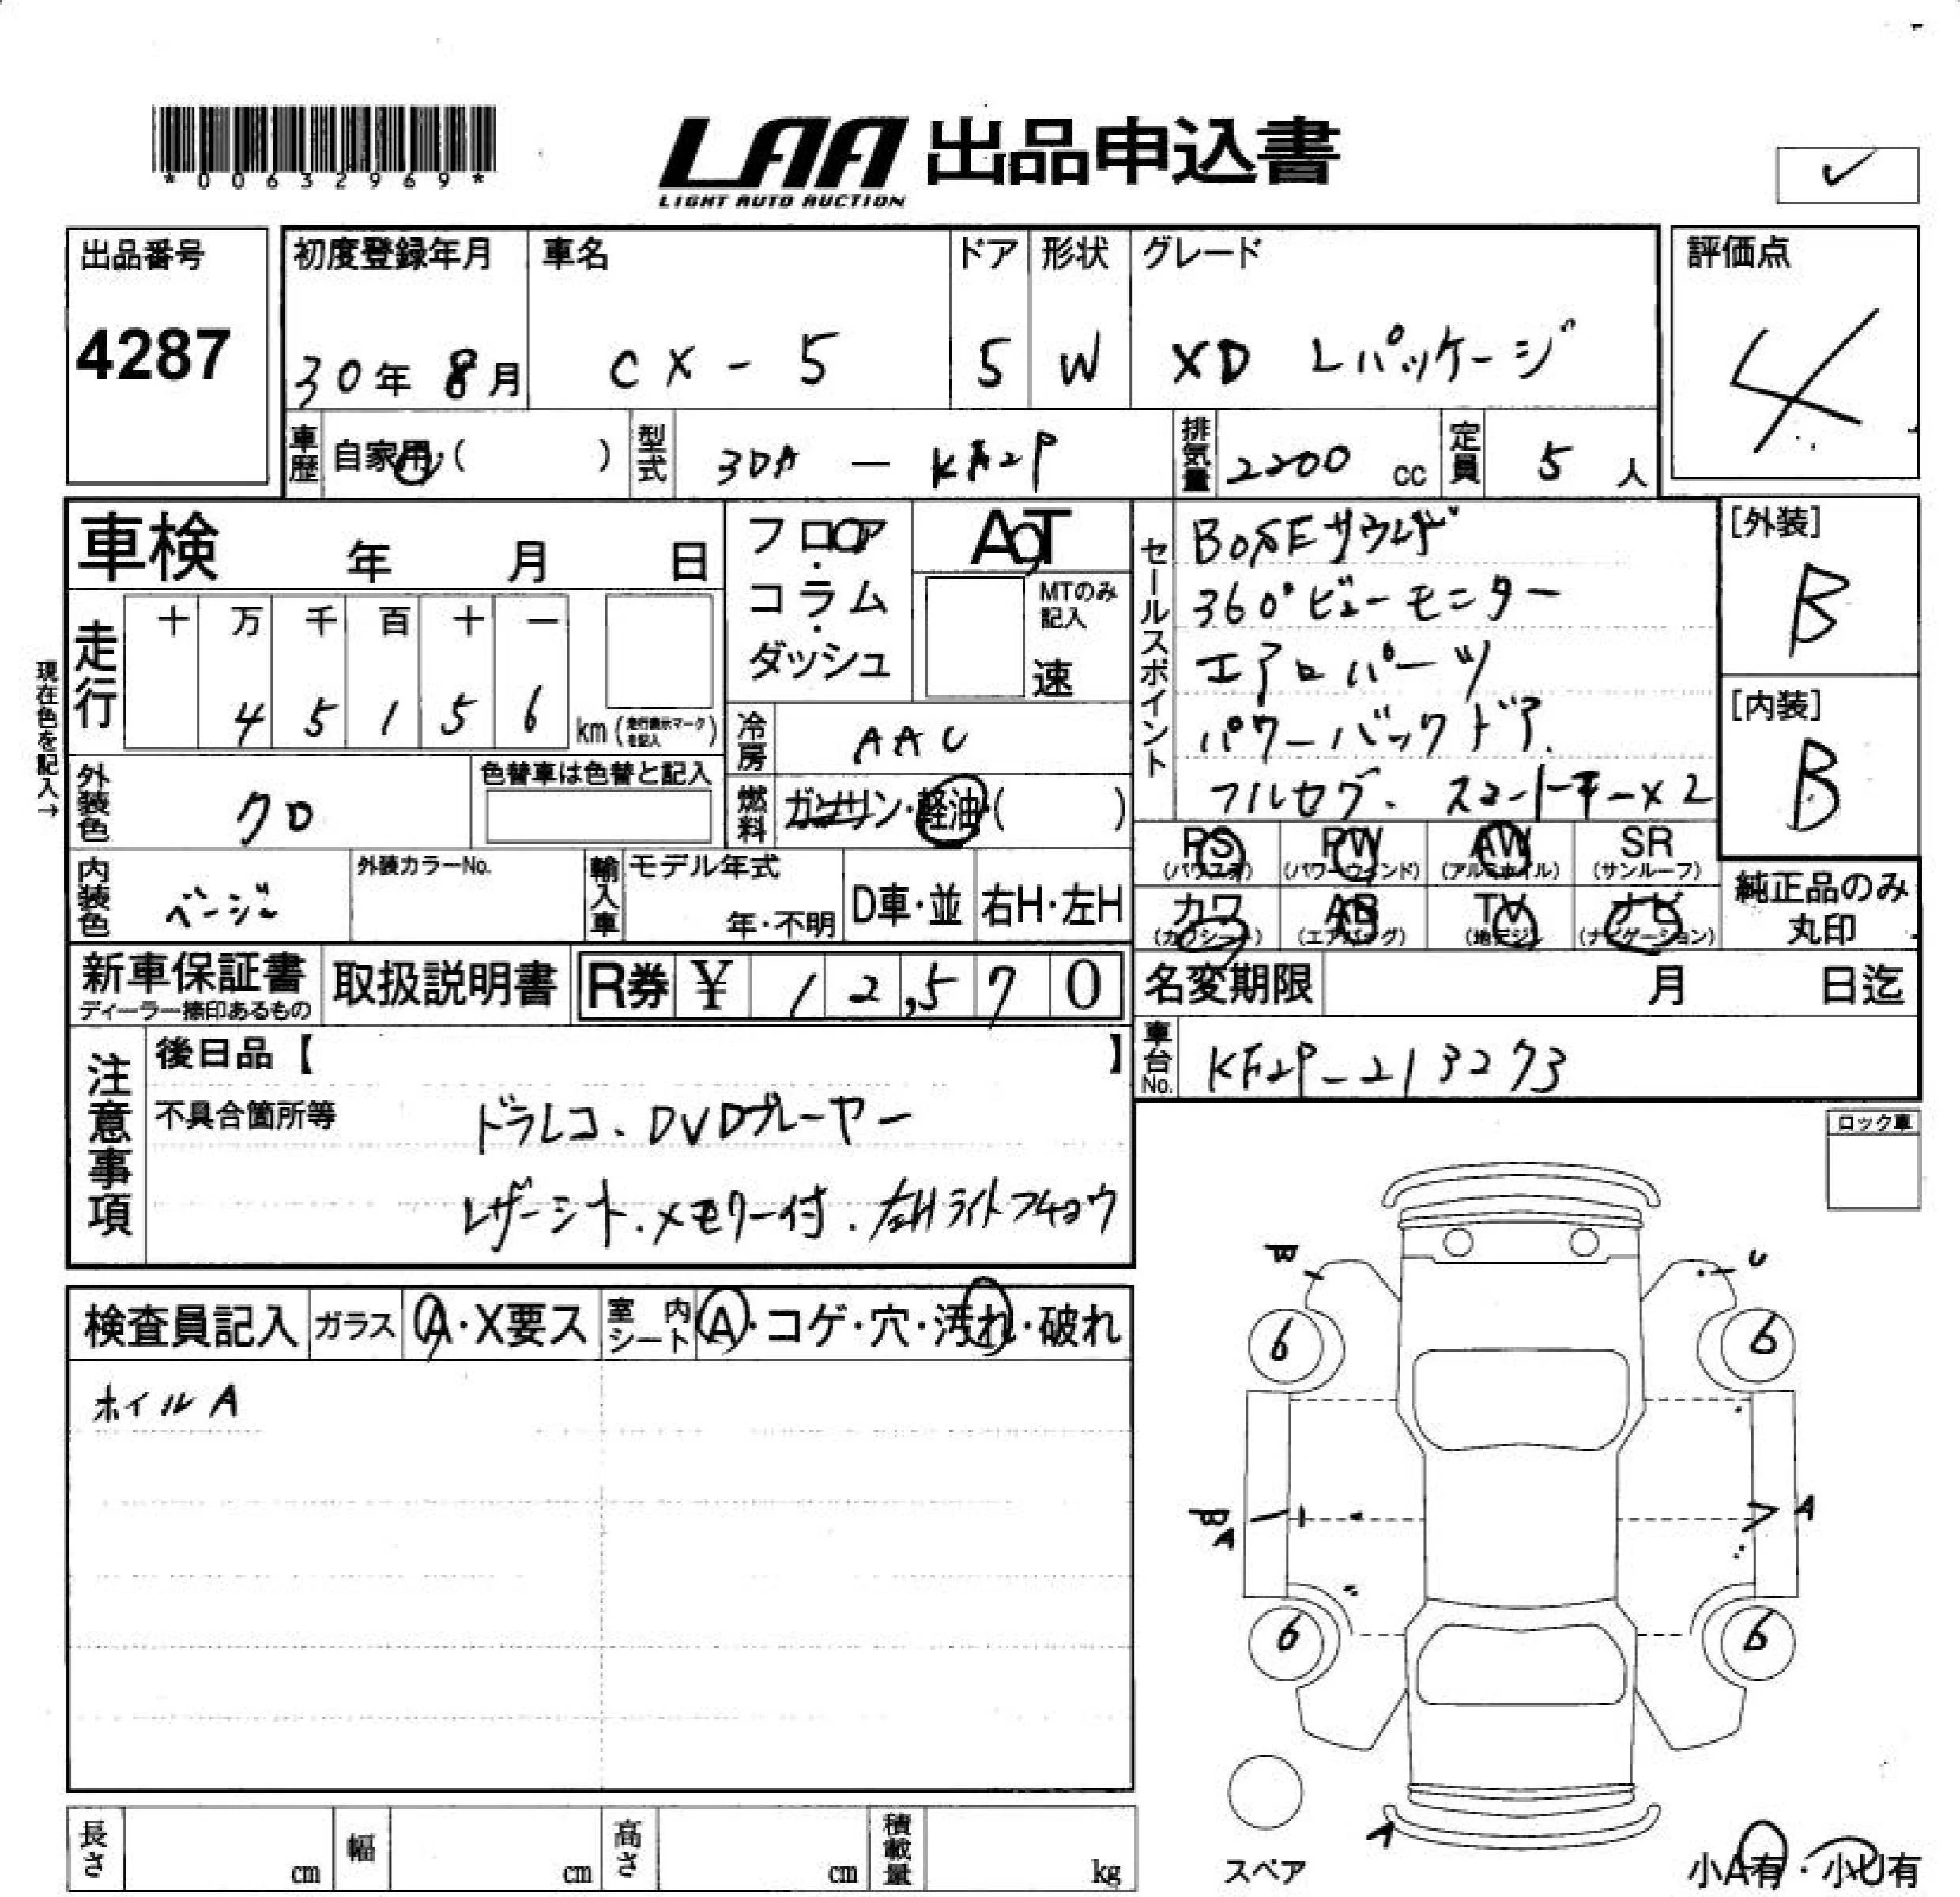 *00632969*
LAA 出品申込書
LIGHT AUTO AUCTION
出品番号
4287
初度登録年月
30年 8月
車名
CX-5
ドア
5
形状
W
グレード
XD Lパッケージ
評価点
4
車歴 自家用・( )
型式 3DA - KF2P
排気量 2200 cc
定員 5 人
車検 年 月 日
フロア・コラム・ダッシュ
AT
MTのみ記入
速
セールスポイント
BOSEサウンド
360°ビューモニター
エアロパーツ
パワーバックドア.
フルセグ. スマートキー×2
[外装]
B
[内装]
B
現在色を記入→
走行
十 万 千 百 十 一
4 5 1 5 6 km (走行表示マークを記入)
冷房 AAC
燃料 ガソリン・軽油・( )
外装色 クロ
色替車は色替と記入
内装色 ベージュ
外装カラーNo.
輸入車
モデル年式
年・不明
D車・並
右H・左H
PS (パワステ)
PW (パワーウィンド)
AW (アルミホイル)
SR (サンルーフ)
カワ (カワシート)
AB (エアバッグ)
TV (地デジ)
ナビ (ナビゲーション)
純正品のみ
丸印
新車保証書
ディーラー捺印あるもの
取扱説明書
R券 ¥ 12,570
名変期限 月 日迄
車台No. KF2P-213273
注意事項
後日品【 】
不具合箇所等
ドラレコ. DVDプレーヤー
レザーシート. メモリー付. 左Hライトフチョウ
ロック車
検査員記入
ガラス A・X要ス
室内シート A・コゲ・穴・汚れ・破れ
ホイルA
B
U
6
6
B A
A
6
6
A
スペア
小A有・小U有
長さ cm
幅 cm
高さ cm
積載量 kg